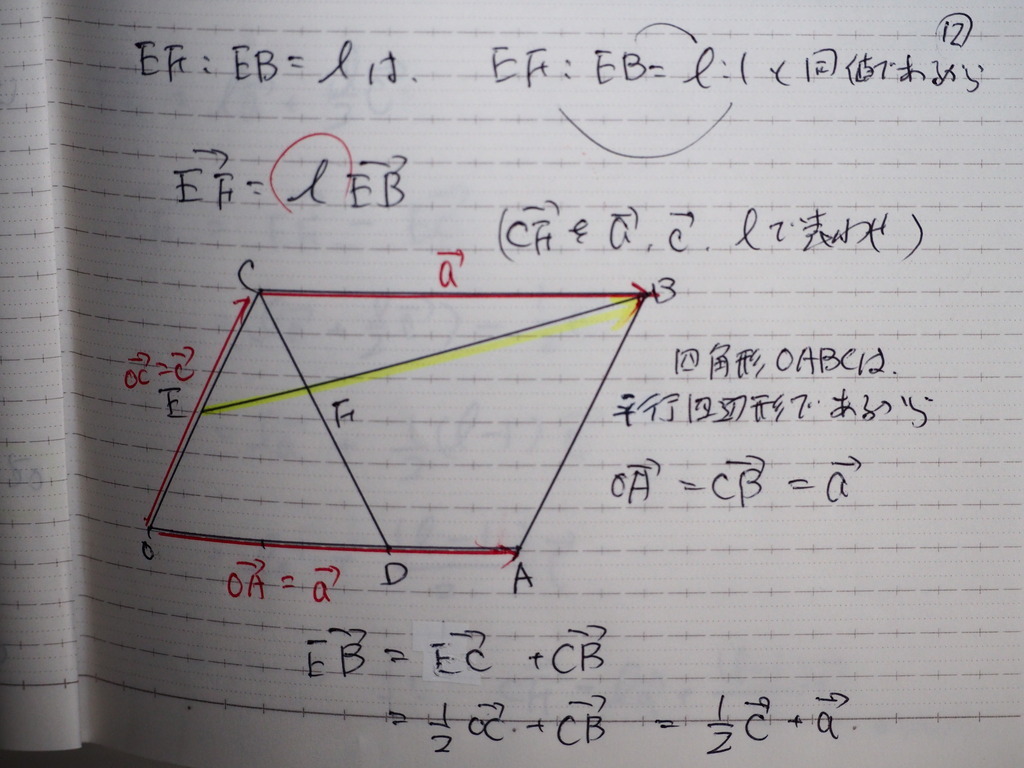 12
EF : EB = l は. EF : EB = l : 1 と同値であるから
EF→ = l EB→
(CF→ を a→. c→. l で表わせ)
C a→ B
OC→ = c→
E
F
四角形OABCは.
平行四辺形であるから
OA→ = CB→ = a→
O D A
OA→ = a→
EB→ = EC→ + CB→
= 1/2 OC→ + CB→ = 1/2 c→ + a→.